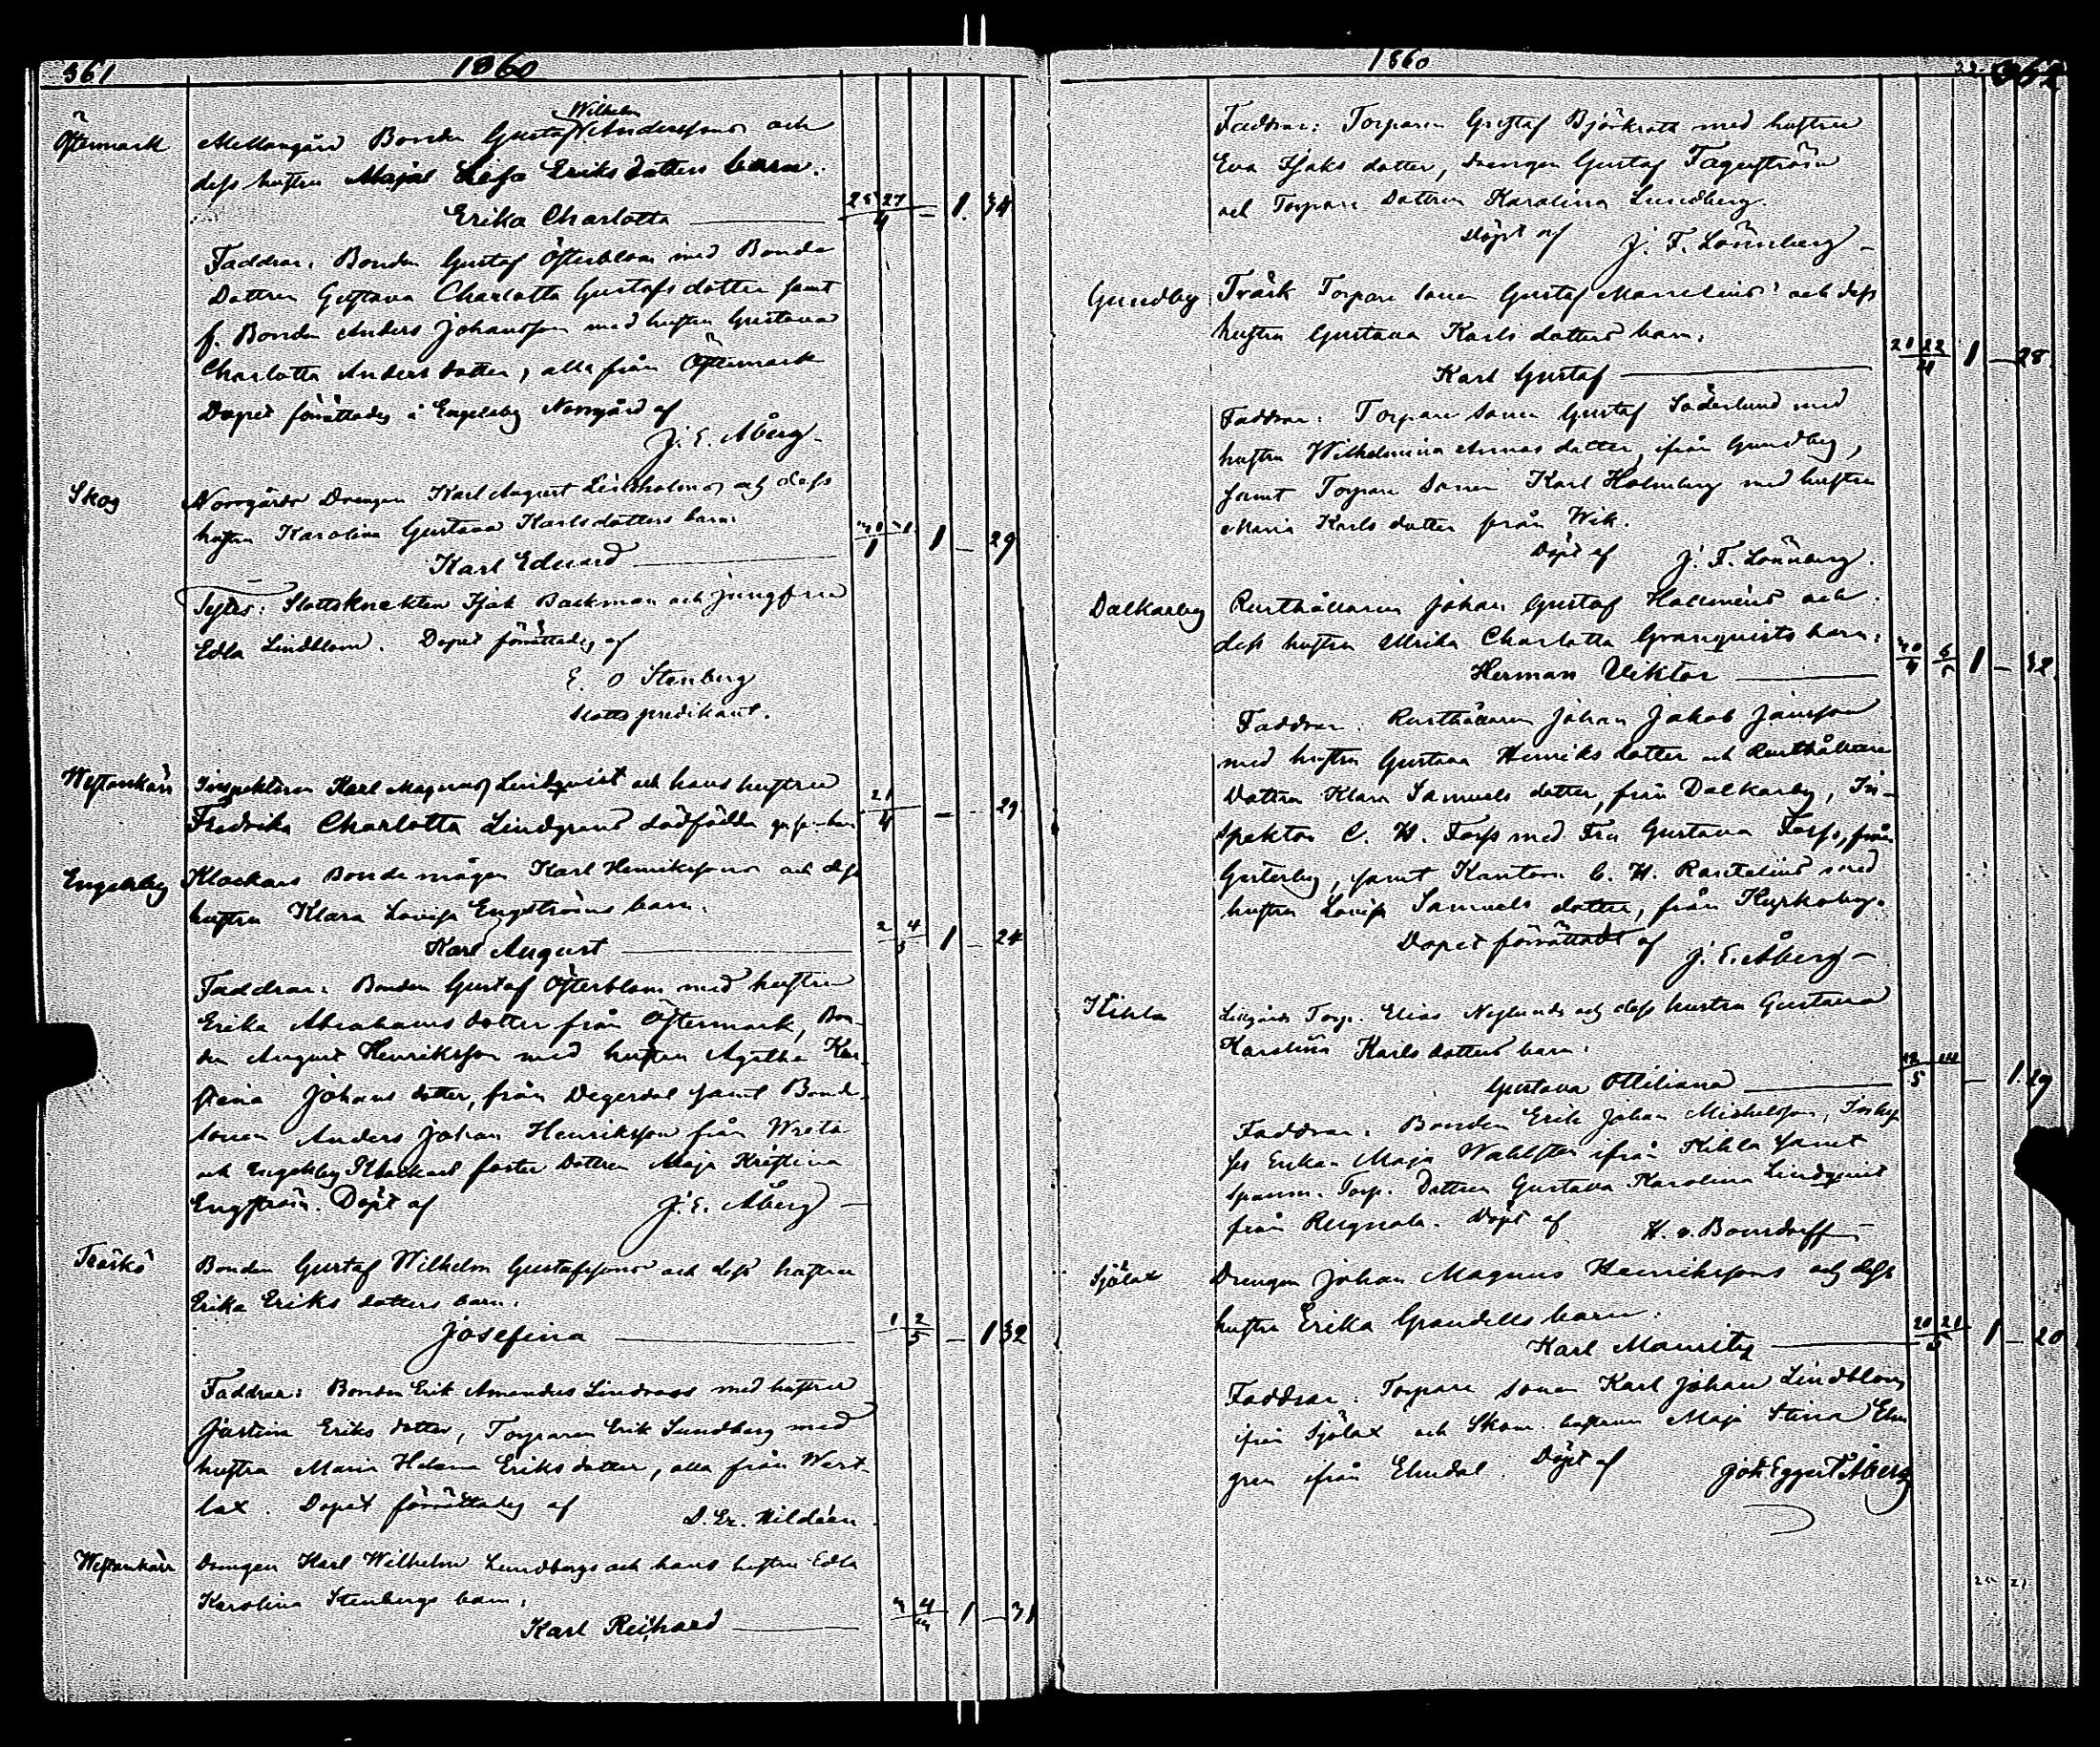 361
1860
Östermark
Mellangård Bonden Gustaf Wilhelm Anderssons och
dess hustru Maja Lisa Eriksdotters barn.
Erika Charlotta
25 27
4
– 1. 34
Faddrar: Bonden Gustaf Österblom med Bonde
Dottren Gustava Charlotta Gustafsdotter samt
f. Bonden Anders Johansson med hustru Gustava
Charlotta Andersdotter, alla från Östermark
Dopet förättades i Engelsby Norrgård af
J. E. Åberg
Skog
Norrgårds Drengen Karl August Lindholms och dess
hustru Karolina Gustava Karlsdotters barn.
Karl Eduard
1 – 29
Testes: Slottsknekten Isak Backman och jungfru
Edla Lindblom. Dopet förrättades af
E. O Stenberg
slotts predikant.
Westankärr
Inspektoren Karl Magnus Lindqvist och hans hustru
Fredrika Charlotta Lindgrens dödfödda
21
4
– 29
Engelsby
Klockars Bonde mågen Karl Henrikssons och dess
hustru Klara Lovisa Engströms barn.
Karl August
2 4
5
1 – 24
Faddrar: Bonden Gustaf Österblom med hustru
Erika Abrahamsdotter från Östermark, Bon-
den August Henriksson med hustru Agatha Kri-
stina Johansdotter, från Degerdal samt Bonde-
sonen Anders Johan Henriksson från Wreta
och Engelsby Klockars foster dottren Maja Kristina
Engström. Döpt af
J. E. Åberg
Träskö
Bonden Gustaf Wilhelm Gustafssons och dess hustru
Erika Eriksdotters barn.
Josefina
1 2
5
– 1 32
Faddrar: Bonden Erik Amandus Lindroos med hustru
Justina Eriksdotter, Torparen Erik Sundberg med
hustru Maria Helena Eriksdotter, alla från Wert-
lax. Dopet förrättades af
D. Er. Hildéen
Westankärr
Drengen Karl Wilhelm Lundbergs och hans hustru Edla
Karolina Stenbergs barn,
Karl Reichard
3 4
5
1 – 31
1860
362
Faddrar: Torparen Gustaf Björkroth med hustru
Eva Isaksdotter, drengen Gustaf Fagerström
och Torpare Dottren Karolina Lundberg.
Döpt af
J. F. Lönnberg
Gundby
Träsk Torpare sonen Gustaf Manelius' och dess
hustru Gustava Karlsdotters barn,
Karl Gustaf
20 22
4
1 – 28
Faddrar: Torpare sonen Gustaf Söderlund med
hustru Wilhelmina dotter, ifrån Gundby,
samt Torpare Sonen Karl Holmberg med hustru
Maria Karls dotter från Wik.
Döpt af
J. F. Lönnberg.
Dalkarby
Rusthållaren Johan Gustaf Hollméns och
dess hustru Ulrika Charlotta Granquists barn,
Herman Viktor
30 6
4 5
1 – 32
Faddrar. Rusthållaren Johan Jakob Jansson
med hustru Gustava Henriks dotter och Rusthållare
Dottren Klara Samuels dotter, från Dalkarby, In-
spektor C. W. Forss med Fru Gustava Forss, från
Gesterby, samt Kantorn C. H. Rantelius med
hustru Lovisa Samuels dotter, från Kyrkoby.
Dopet förrättadt af
J. E. Åberg
Kihla
Lillgårds Torp. Elias Nylunds och dess hustru Gustava
Karolina Karls dotters barn.
Gustava Ottiliana
12 14
5
– 1. 29
Faddrar: Bonden Erik Johan Michelsson,
Enkan Maja Wahlsten ifrån Kihla samt
Spanm. Torp. Dottren Gustava Karolina Lindqvist
från Rugnola. Döpt af
H. v. Bonsdorff
Sjölax
Drengen Johan Magnus Henrikssons och dess
hustru Erika Grandells barn.
Karl Mauritz
20 21
5
1 – 20
Faddrar: Torpare sonen Karl Johan Lindblom
ifrån Sjölax och Skom. hustrun Maja Stina Elm
gren ifrån Elmdal. Döpt af
Joh: Eggert Åberg